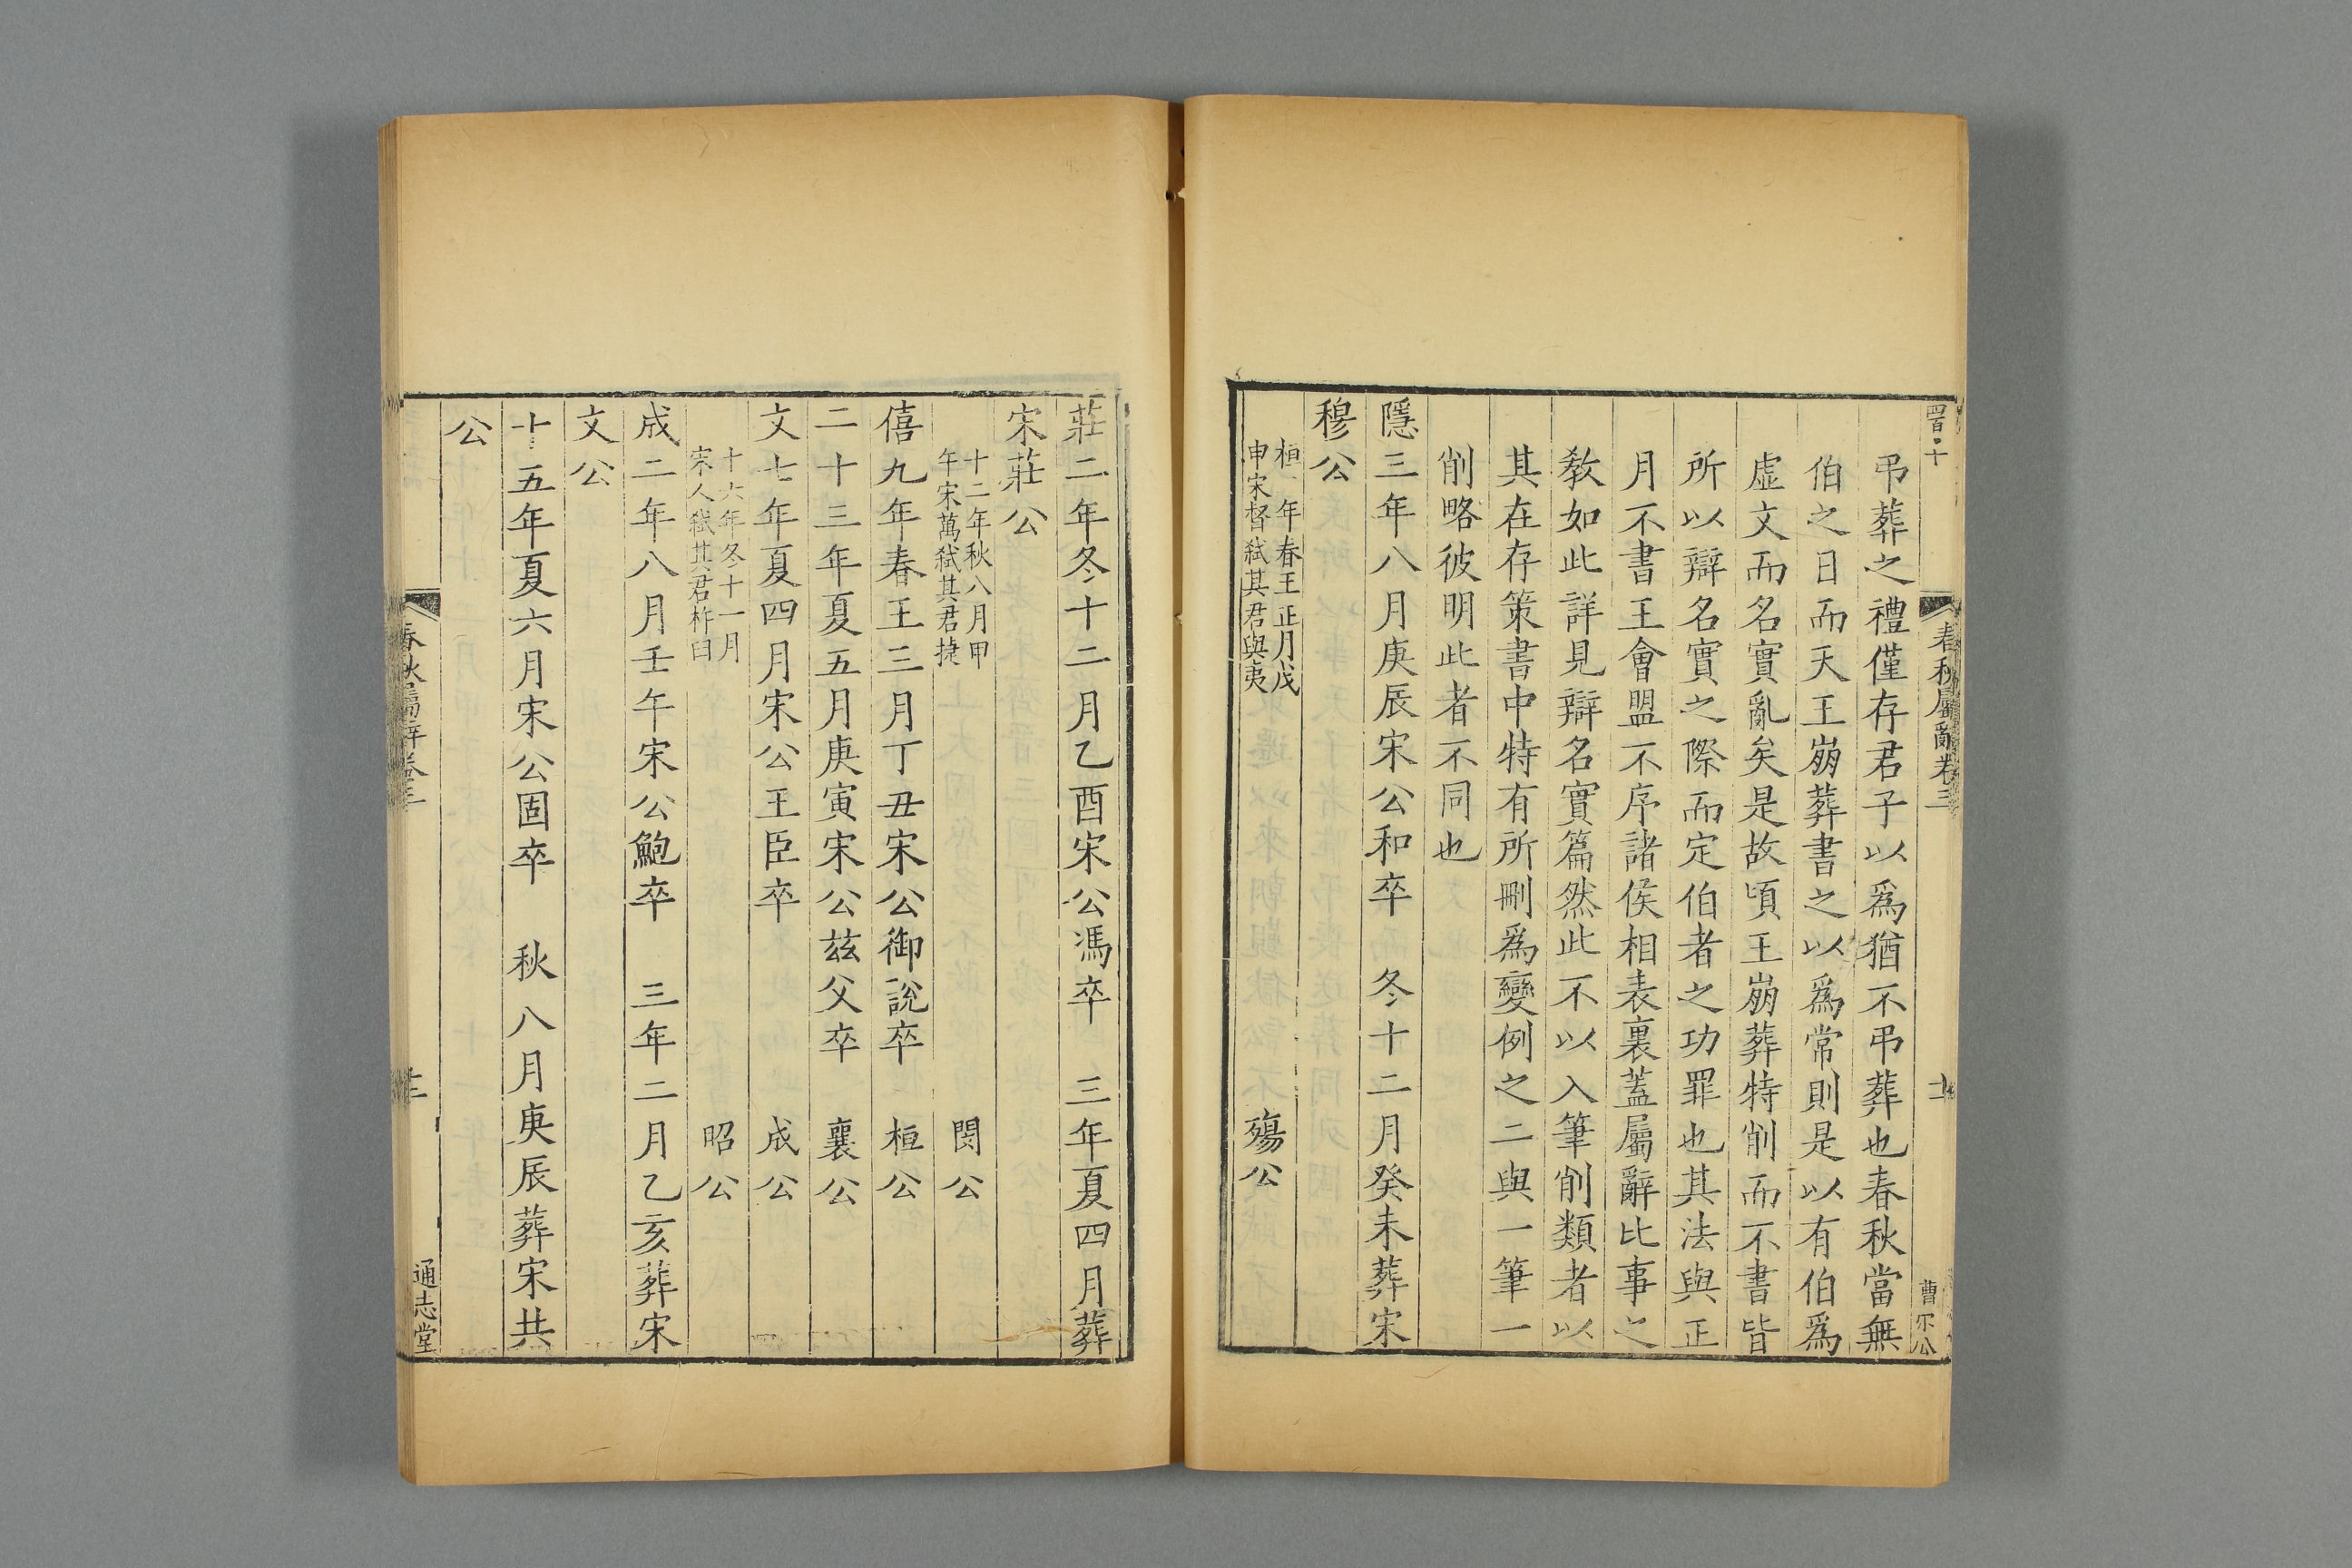 春秋屬辭卷三
弔葬之禮僅存君子以爲猶不弔葬也春秋當無
伯之日而天王崩葬書之以爲常則是以有伯爲
虛文而名實亂矣是故頃王崩葬特削而不書皆
所以辯名實之際而定伯者之功罪也其法與正
月不書王會盟不序諸侯相表裏蓋屬辭比事之
敎如此詳見辯名實篇然此不以入筆削類者以
其在存策書中特有所刪爲變例之二與一筆一
削略彼明此者不同也
隱三年八月庚辰宋公和卒　冬十二月癸未葬宋
穆公
桓二年春王正月戊
申宋督弑其君與夷
殤公
莊二年冬十二月乙酉宋公馮卒　三年夏四月葬
宋莊公
十二年秋八月甲
午宋萬弑其君捷
閔公
僖九年春王三月丁丑宋公御說卒　桓公
二十三年夏五月庚寅宋公茲父卒　襄公
文七年夏四月宋公王臣卒　成公
十六年冬十一月
宋人弑其君杵臼
昭公
成二年八月壬午宋公鮑卒　三年二月乙亥葬宋
文公
十五年夏六月宋公固卒　秋八月庚辰葬宋共
公
春秋屬辭卷三
通志堂